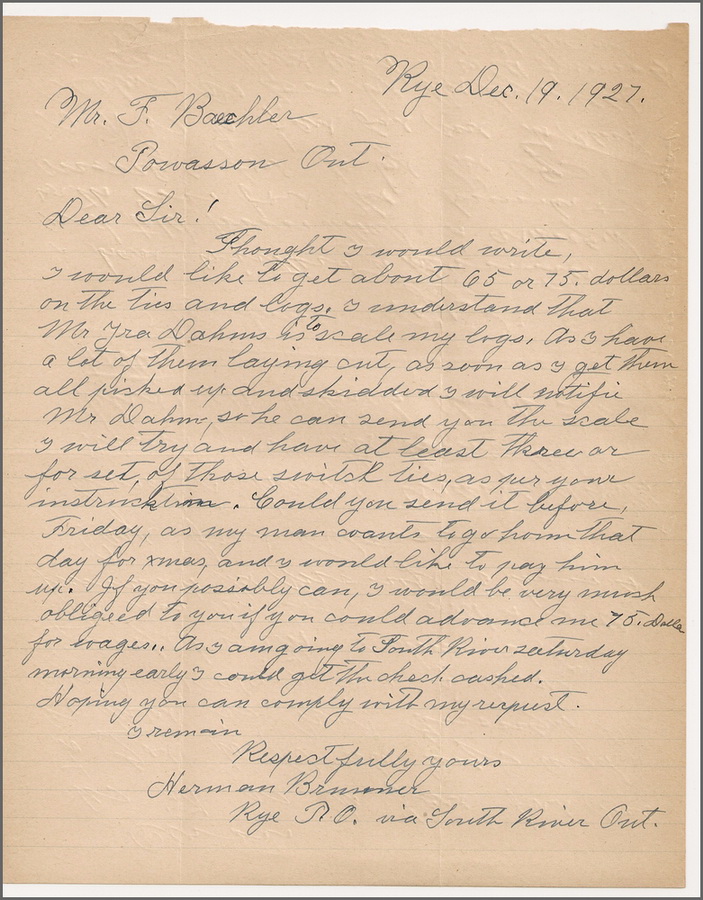 Rye Dec. 19. 1927.
Mr. F. Baechler
Powasson Ont.
Dear Sir!
Thought I would write,
I would like to get about 65 or 75. dollars
on the ties and logs. I understand that
Mr Ira Dahms is to scale my logs. As I have
a lot of them laying cut, as soon as I get them
all picked up and skidded I will notifie
Mr Dahm, so he can send you the scale
I will try and have at least three or
for set, of those switch ties, as per your
instrucktion. Could you send it before,
Friday, as my man wants to go hom that
day for xmas, and I would like to pay him
up. If you possibly can, I would be very much
obligeed to you if you could advance me 75. Dolla
for wages.. As I am going to South River saturday
morning early I could get the check cashed.
Hoping you can comply with my request.
I remain
Respectfully yours
Herman Brunner
Rye P.O. via South River Ont.